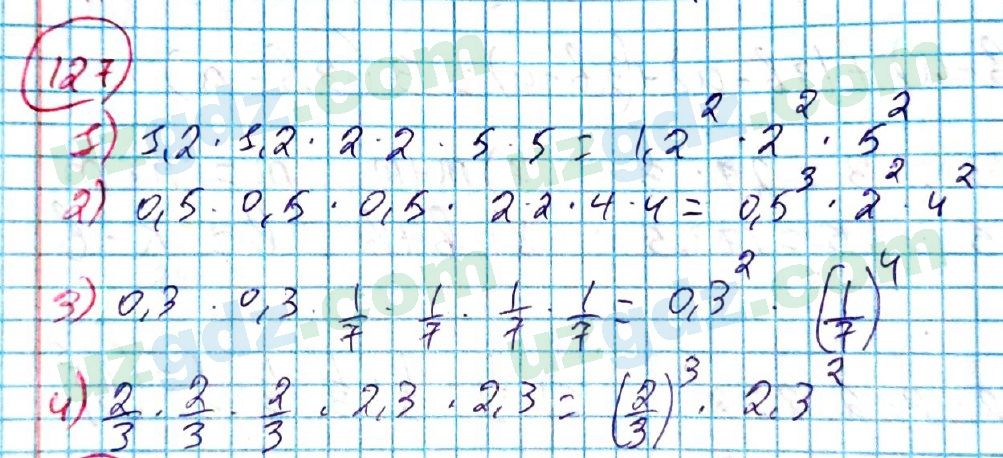 127
1) 1,2 · 1,2 · 2 · 2 · 5 · 5 = 1,2² · 2² · 5²
2) 0,5 · 0,5 · 0,5 · 2 · 2 · 4 · 4 = 0,5³ · 2² · 4²
3) 0,3 · 0,3 · 1/7 · 1/7 · 1/7 · 1/7 = 0,3² · (1/7)⁴
4) 2/3 · 2/3 · 2/3 · 2,3 · 2,3 = (2/3)³ · 2,3²
uzgdz.com
uzgdz.com
uzgdz.com
uzgdz.com